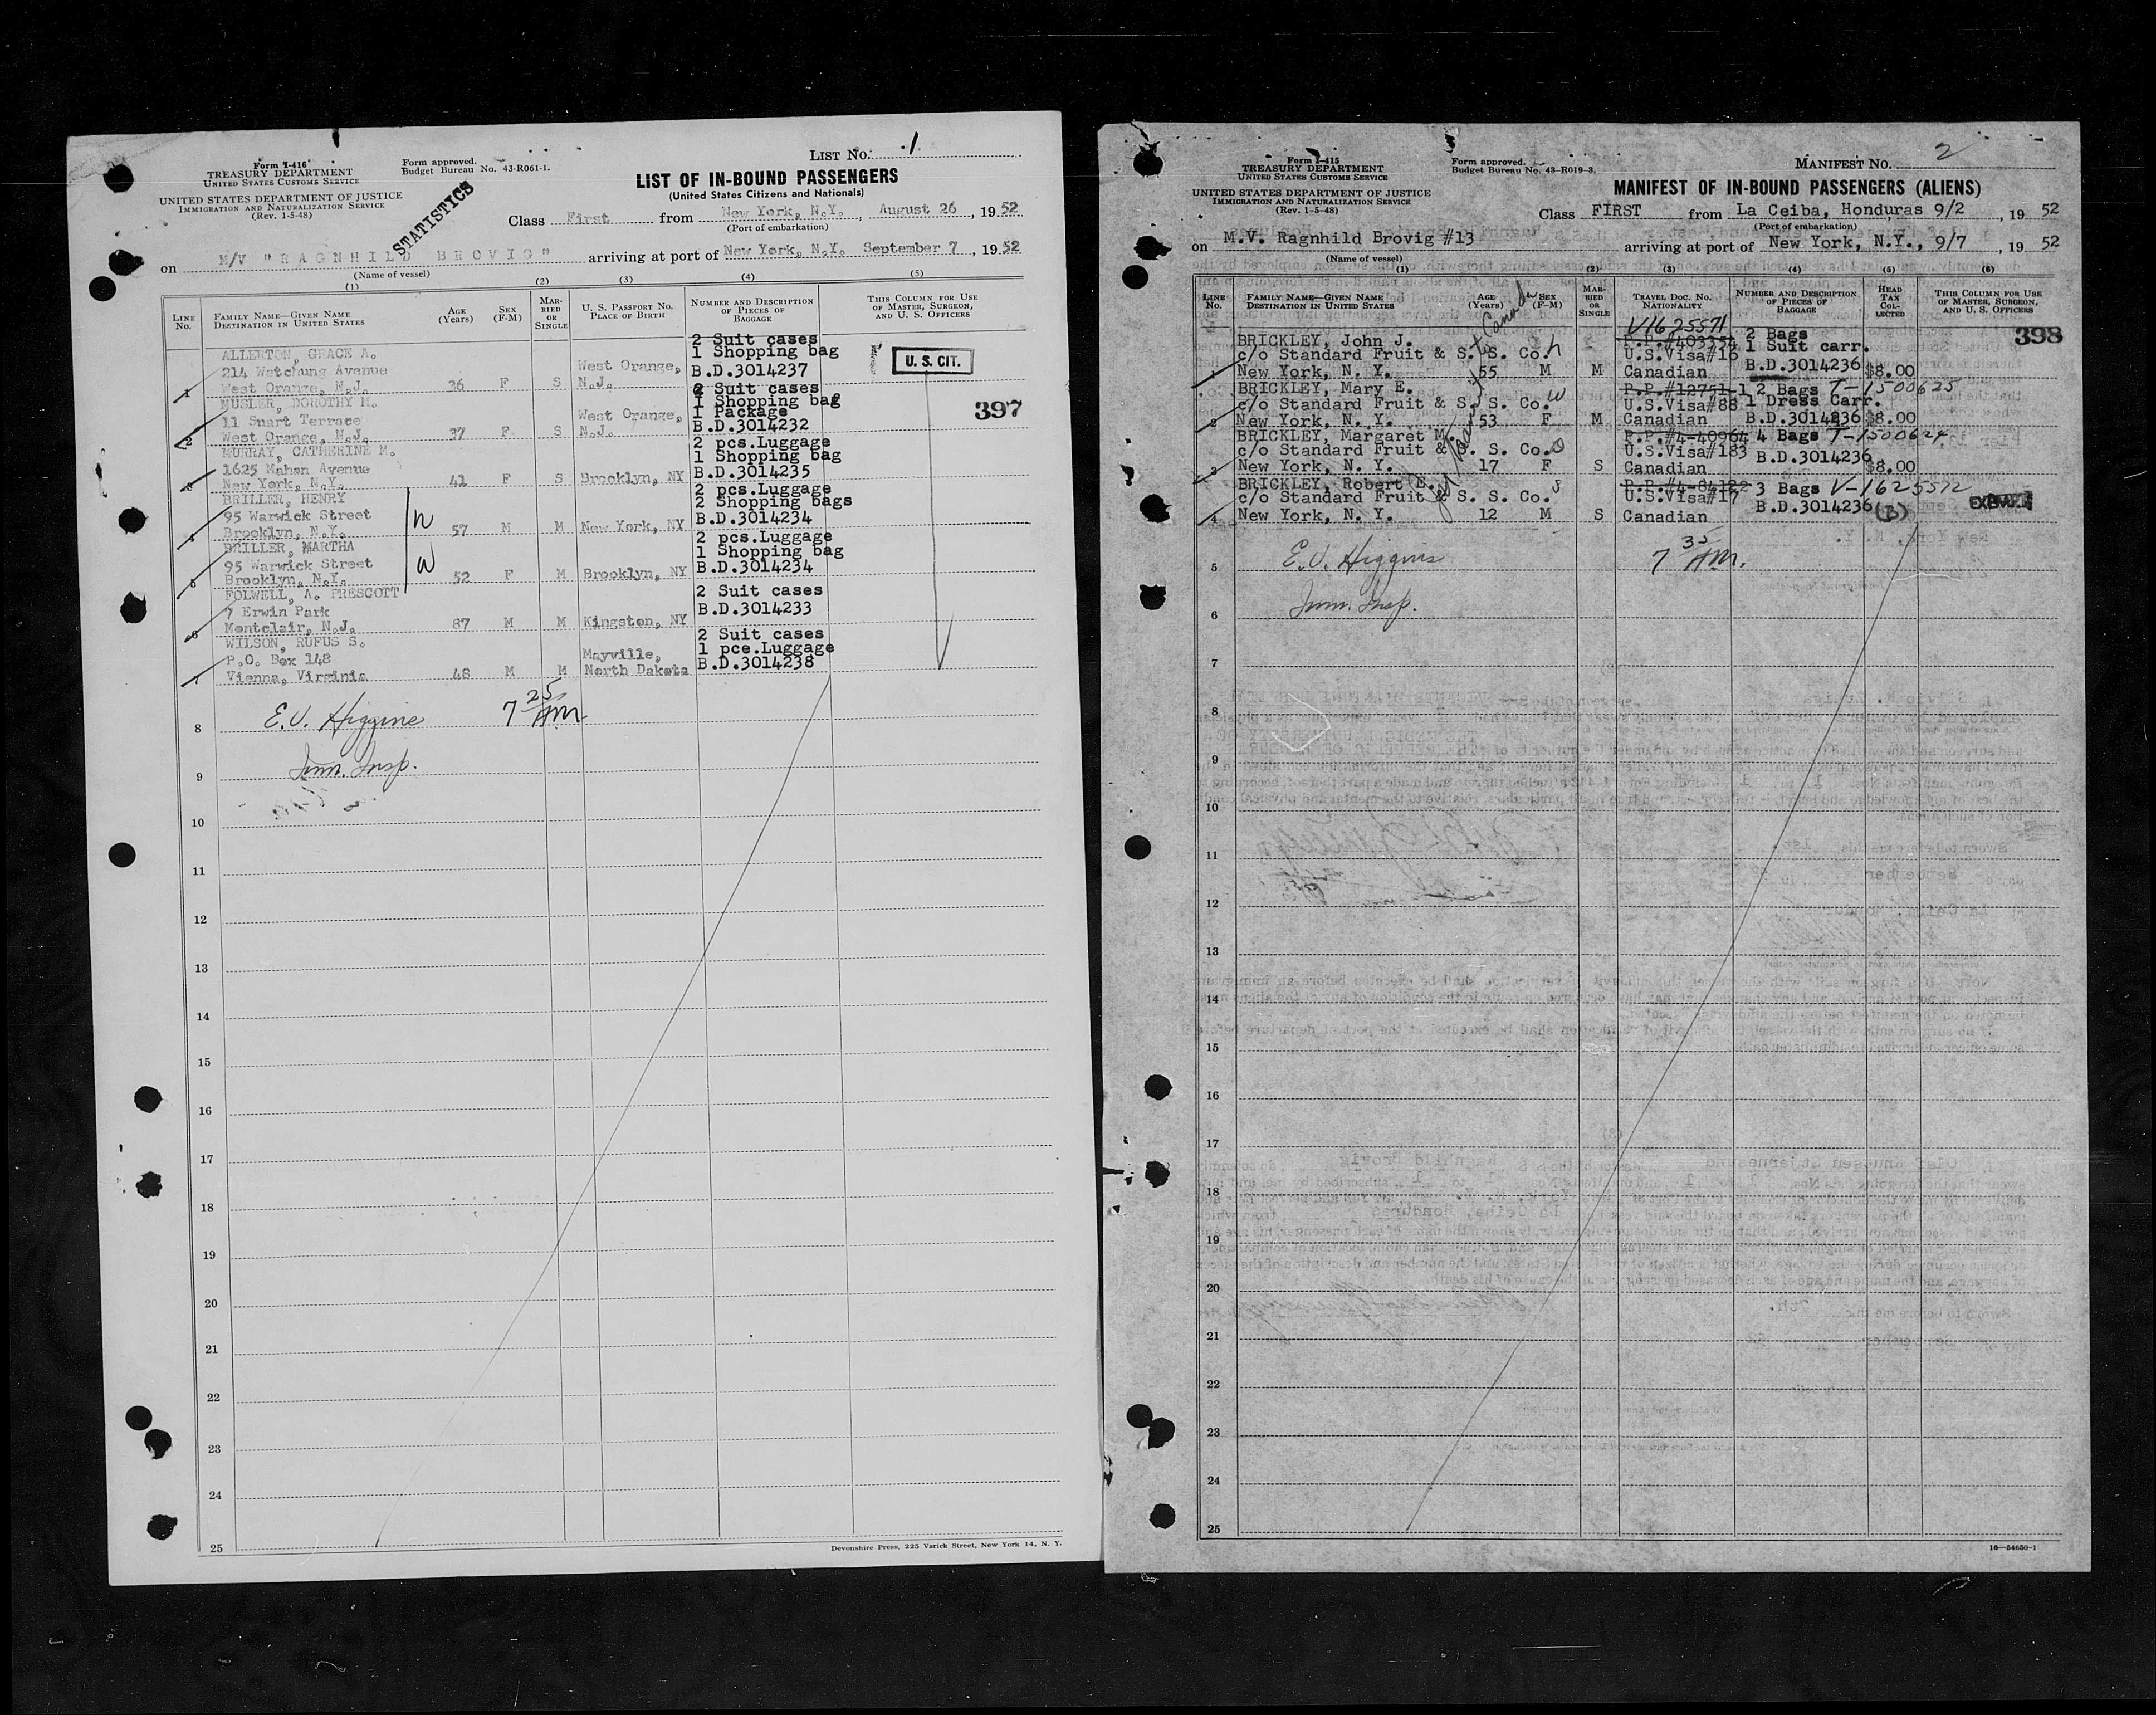 LIST NO. 1
Form I-416
TREASURY DEPARTMENT
UNITED STATES CUSTOMS SERVICE
Form approved.
Budget Bureau No. 43-R061-1.
UNITED STATES DEPARTMENT OF JUSTICE
IMMIGRATION AND NATURALIZATION SERVICE
(Rev. 1-5-48)
STATISTICS
LIST OF IN-BOUND PASSENGERS
(United States Citizens and Nationals)
Class First from New York, N.Y., August 26, 1952
(Port of embarkation)
on M/V "RAGNHILD BROVIG" arriving at port of New York, N.Y. September 7, 1952
(Name of vessel)
(1) (2) (3) (4) (5)
LINE NO.
FAMILY NAME—GIVEN NAME
DESTINATION IN UNITED STATES
AGE (Years)
SEX (F-M)
MARRIED OR SINGLE
U. S. PASSPORT NO.
PLACE OF BIRTH
NUMBER AND DESCRIPTION OF PIECES OF BAGGAGE
THIS COLUMN FOR USE OF MASTER, SURGEON, AND U. S. OFFICERS
2 Suit cases
ALLERTON, GRACE A. 1 Shopping bag
214 Watchung Avenue West Orange, B.D.3014237 U. S. CIT.
1 West Orange, N.J. 36 F S N.J.
2 Suit cases
MUSLER, DOROTHY H. 1 Shopping bag
1 Package 397
11 Suart Terrace West Orange, B.D.3014232
2 West Orange, N.J. 37 F S N.J.
MURRAY, CATHERINE M. 2 pcs.Luggage
1 Shopping bag
1625 Mahan Avenue B.D.3014235
3 New York, N.Y. 41 F S Brooklyn, NY
BRILLER, HENRY 2 pcs.Luggage
2 Shopping bags
95 Warwick Street B.D.3014234
4 Brooklyn, N.Y. 57 M M New York, NY
BRILLER, MARTHA 2 pcs.Luggage
1 Shopping bag
95 Warwick Street W B.D.3014234
5 Brooklyn, N.Y. 52 F M Brooklyn, NY
FOLWELL, A. PRESCOTT 2 Suit cases
7 Erwin Park B.D.3014233
6 Montclair, N.J. 87 M M Kingston, NY
WILSON, RUFUS S. 2 Suit cases
P.O. Box 148 Mayville, 1 pce.Luggage
7 Vienna, Virginia 48 M M North Dakota B.D.3014238
E.V. Higgins 7 25 AM.
8
Imm. Insp.
9
10
11
12
13
14
15
16
17
18
19
20
21
22
23
24
25
Devonshire Press, 225 Varick Street, New York 14, N. Y.
MANIFEST NO. 2
Form I-415
TREASURY DEPARTMENT
UNITED STATES CUSTOMS SERVICE
Form approved.
Budget Bureau No. 43-R019-3.
UNITED STATES DEPARTMENT OF JUSTICE
IMMIGRATION AND NATURALIZATION SERVICE
(Rev. 1-5-48)
MANIFEST OF IN-BOUND PASSENGERS (ALIENS)
Class FIRST from La Ceiba, Honduras 9/2, 1952
(Port of embarkation)
on M.V. Ragnhild Brovig #13 arriving at port of New York, N.Y., 9/7, 1952
(Name of vessel)
(1) (2) (3) (4) (5) (6)
LINE NO.
FAMILY NAME—GIVEN NAME
DESTINATION IN UNITED STATES
AGE (Years)
SEX (F-M)
MARRIED OR SINGLE
TRAVEL DOC. NO.
NATIONALITY
NUMBER AND DESCRIPTION OF PIECES OF BAGGAGE
HEAD TAX COLLECTED
THIS COLUMN FOR USE OF MASTER, SURGEON, AND U. S. OFFICERS
Canada
V1625571
BRICKLEY, John J. P.P.#403354 2 Bags 398
c/o Standard Fruit & S. S. Co. h U.S.Visa#16 1 Suit carr.
1 New York, N. Y. 55 M M Canadian B.D.3014236 $8.00
BRICKLEY, Mary E. P.P.#12751-1 2 Bags T-1500625
c/o Standard Fruit & S. S. Co. W U.S.Visa#88 1 Dress Carr.
2 New York, N. Y. 53 F M Canadian B.D.3014236 $8.00
BRICKLEY, Margaret M. P.P.#4-40964 4 Bags T-1500624
c/o Standard Fruit & S. S. Co. U.S.Visa#183 B.D.3014236
3 New York, N. Y. 17 F S Canadian $8.00
BRICKLEY, Robert E. P.P.#4-84122 3 Bags V-1625572
c/o Standard Fruit & S. S. Co. U.S.Visa#17 B.D.3014236 (B)
4 New York, N. Y. 12 M S Canadian
E.V. Higgins 7 35 AM.
5
Imm. Insp.
6
7
8
9
10
11
12
13
14
15
16
17
18
19
20
21
22
23
24
25
16—54650-1